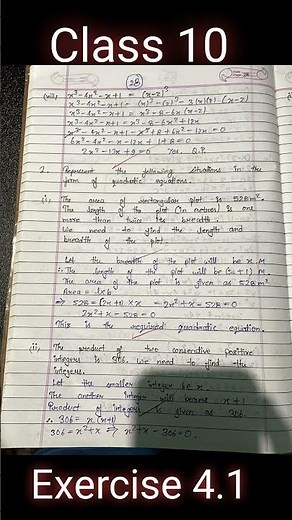 Class 10
28
(viii) x³-4x²-x+1 = (x-2)³
x³-4x²-x+1 = (x)³-(2)³-3(x)(2)(x-2)
x³-4x²-x+1 = x³-8-6x(x-2)
x³-4x²-x+1 = x³-8-6x²+12x
x³-4x²-x+1-x³+8+6x²-12x=0
6x²-4x²-x-12x+1+8=0
2x²-13x+9=0 Yes, Q.P.
2. Represent the following situations in the
form of quadratic equations.
(i) The area of rectangular plot is 528m².
The length of the plot (in metres) is one
more than twice the breadth.
We need to find the length and
breadth of the plot.
Let the breadth of the plot will be x M.
∴ The length of the plot will be (2x+1) M.
The area of the plot is given as 528m²
Area = l×b
⇒ 528 = (2x+1) × x = 2x²+x-528=0
2x²+x-528=0
This is the required quadratic equation.
ii) The product of two consecutive positive
integers is 306. We need to find the
integers.
Let the smaller integer be x.
The another integer will be x+1
Product of integers is given as 306.
∴ 306 = x(x+1)
306=x²+x ⇒ x²+x-306=0.
Exercise 4.1